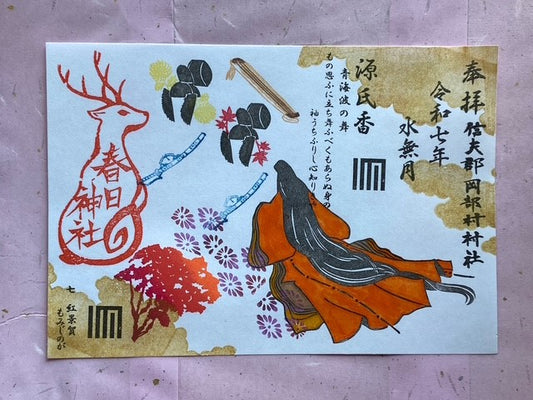 奉拝 信夫郡岡部村村社
令和七年
水無月
源氏香
青海波の舞
もの思ふに立ち舞ふべくもあらぬ身の
袖うちふりし心知りきや
春日神社
七 紅葉賀
もみじのが